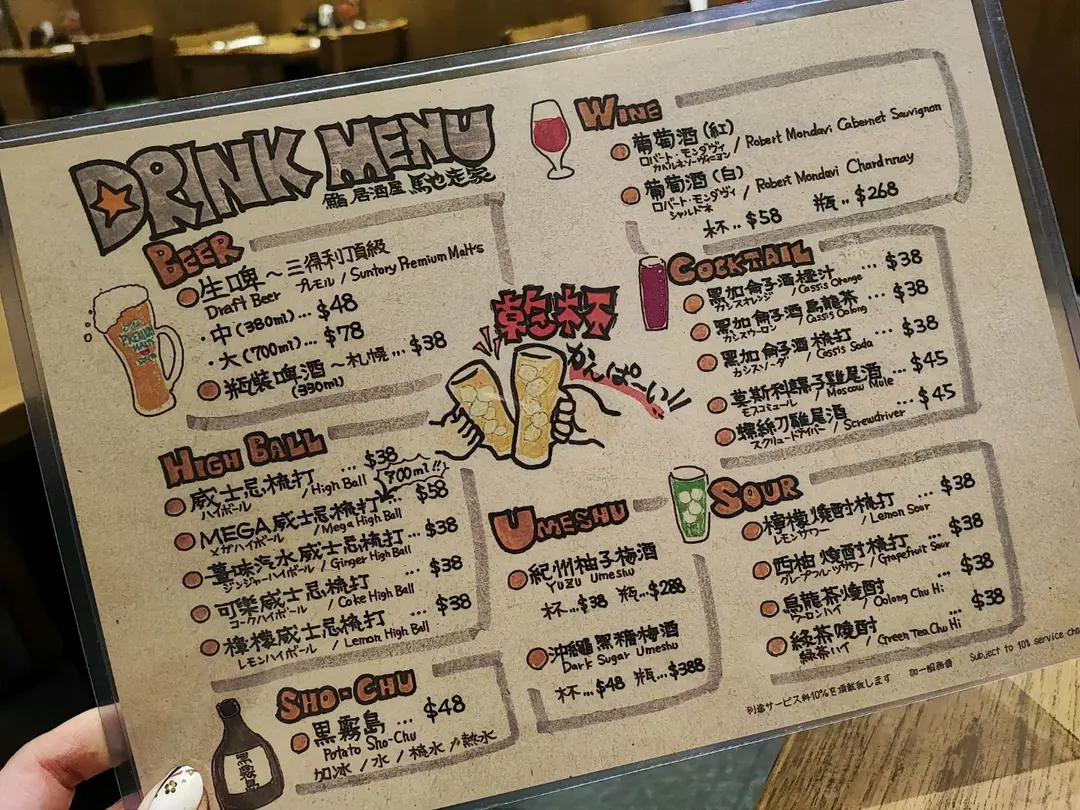 DRINK MENU
鮨 居酒屋 馬也走家
BEER
生啤 ~ 三得利頂級
Draft Beer プレモル / Suntory Premium Malt's
・中 (380ml)... $48
・大 (700ml)... $78
瓶裝啤酒 ~ 札幌 ... $38
(330ml)
HIGH BALL
威士忌梳打 ... $38
ハイボール / High Ball
700ml!!
MEGA 威士忌梳打 ... $58
メガハイボール / Mega High Ball
薑味汽水威士忌梳打 ... $38
ジンジャーハイボール / Ginger High Ball
可樂威士忌梳打 ... $38
コークハイボール / Coke High Ball
檸檬威士忌梳打 ... $38
レモンハイボール / Lemon High Ball
SHO-CHU
黒霧島 ... $48
Potato Sho-Chu
加冰 / 水 / 梳水 / 熱水
黒霧島
乾杯
かんぱーい!!
UMESHU
紀州柚子梅酒
YUZU Umeshu
杯...$38 瓶...$288
沖繩黒糖梅酒
Dark Sugar Umeshu
杯...$48 瓶...$388
WINE
葡萄酒 (紅)
ロバート・モンダヴィ / Robert Mondavi Cabernet Sauvignon
カベルネソーヴィニヨン
葡萄酒 (白)
ロバート・モンダヴィ / Robert Mondavi Chardnnay
シャルドネ
杯..$58 瓶..$268
COCKTAIL
黒加侖子酒橙汁 ... $38
カシスオレンジ / Cassis Orange
黒加侖子酒烏龍茶 ... $38
カシスウーロン / Cassis Oolong
黒加侖子酒梳打 ... $38
カシスソーダ / Cassis Soda
莫斯科騾子雞尾酒 ... $45
モスコミュール / Moscow Mule
螺絲刀雞尾酒 ... $45
スクリュードライバー / Screwdriver
SOUR
檸檬燒酎梳打 ... $38
レモンサワー / Lemon Sour
西柚燒酎梳打 ... $38
グレープフルーツサワー / Grapefruit Sour
烏龍茶燒酎 ... $38
ウーロンハイ / Oolong Chu Hi
綠茶燒酎 ... $38
緑茶ハイ / Green Tea Chu Hi
別途サービス料10%を頂戴致します 加一服務費 Subject to 10% service cha